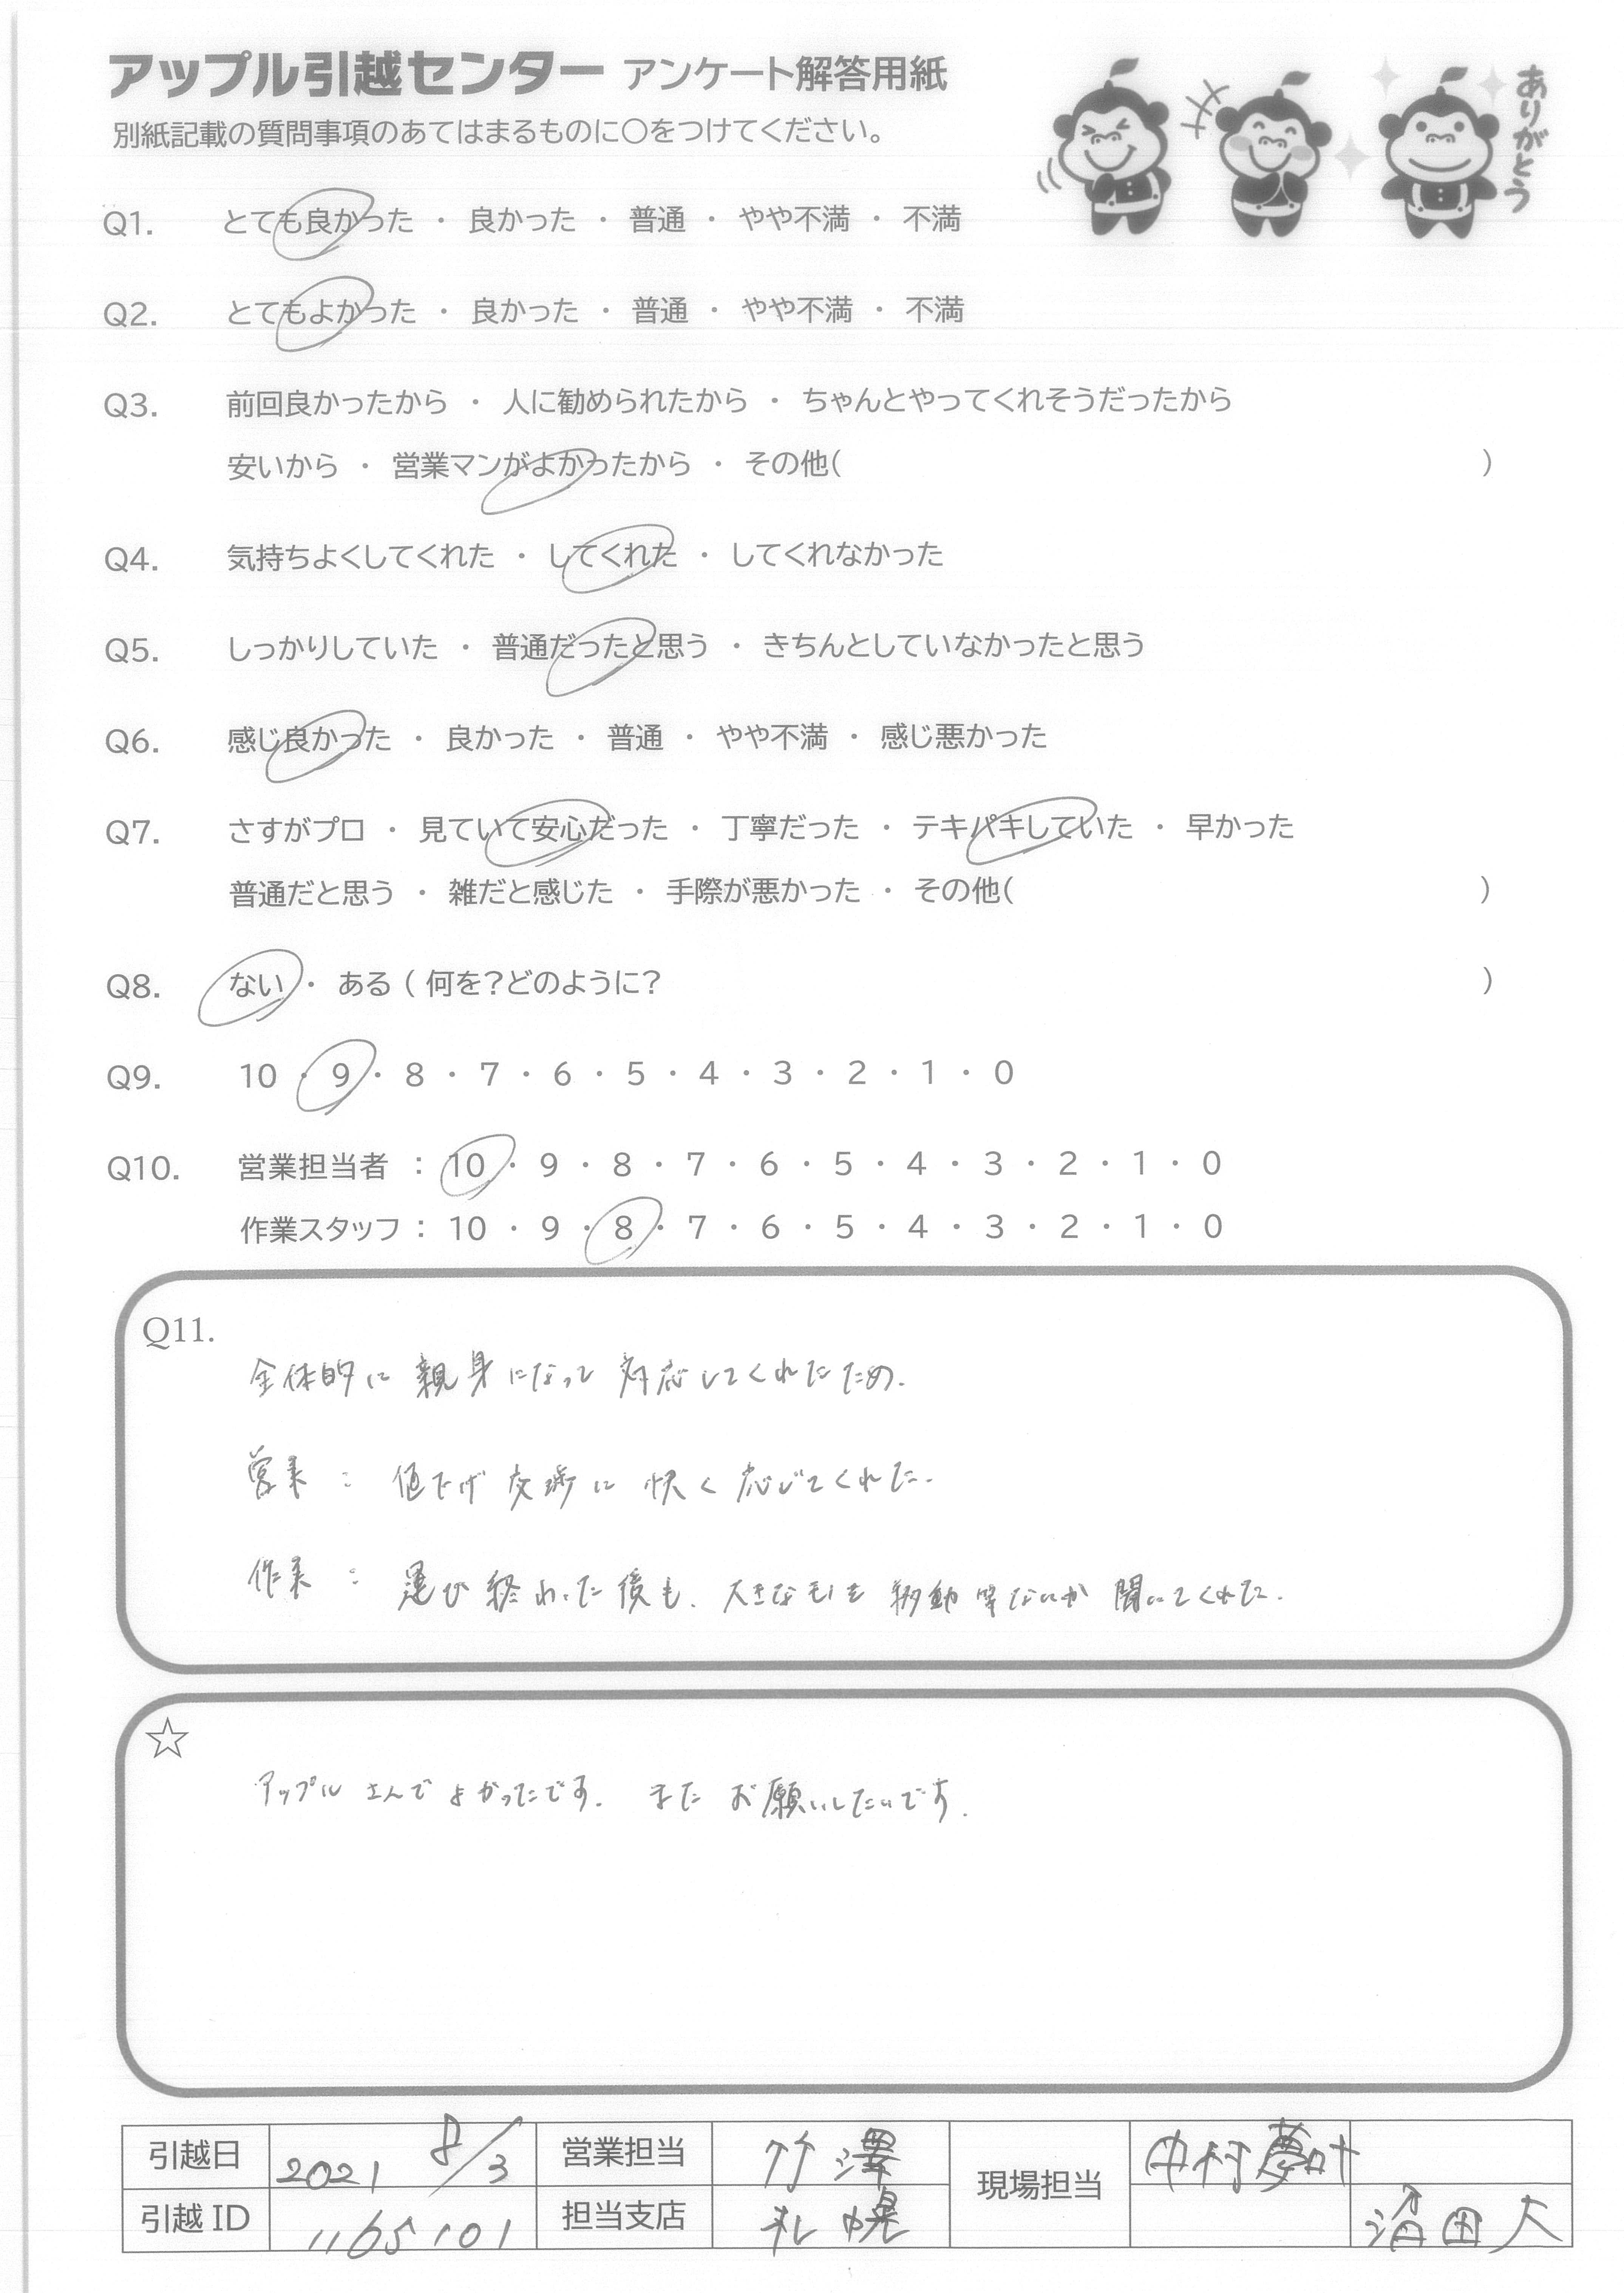 アップル引越センター アンケート解答用紙
ありがとう
別紙記載の質問事項のあてはまるものに○をつけてください。
Q1. とても良かった ・ 良かった ・ 普通 ・ やや不満 ・ 不満
Q2. とてもよかった ・ 良かった ・ 普通 ・ やや不満 ・ 不満
Q3. 前回良かったから ・ 人に勧められたから ・ ちゃんとやってくれそうだったから
安いから ・ 営業マンがよかったから ・ その他( )
Q4. 気持ちよくしてくれた ・ してくれた ・ してくれなかった
Q5. しっかりしていた ・ 普通だったと思う ・ きちんとしていなかったと思う
Q6. 感じ良かった ・ 良かった ・ 普通 ・ やや不満 ・ 感じ悪かった
Q7. さすがプロ ・ 見ていて安心だった ・ 丁寧だった ・ テキパキしていた ・ 早かった
普通だと思う ・ 雑だと感じた ・ 手際が悪かった ・ その他( )
Q8. ない ・ ある ( 何を?どのように? )
Q9. 10 ・ 9 ・ 8 ・ 7 ・ 6 ・ 5 ・ 4 ・ 3 ・ 2 ・ 1 ・ 0
Q10. 営業担当者 : 10 ・ 9 ・ 8 ・ 7 ・ 6 ・ 5 ・ 4 ・ 3 ・ 2 ・ 1 ・ 0
作業スタッフ : 10 ・ 9 ・ 8 ・ 7 ・ 6 ・ 5 ・ 4 ・ 3 ・ 2 ・ 1 ・ 0
Q11.
全体的に親身になって対応してくれたため.
営業 : 値下げ交渉に快く応じてくれた.
作業 : 運び終わった後も、大きなモノを移動等ないか聞いてくれた.
☆
アップルさんでよかったです. またお願いしたいです.
引越日 2021 8/3 営業担当 竹澤 現場担当 中村夢叶
引越ID 1165101 担当支店 札幌 沼田大